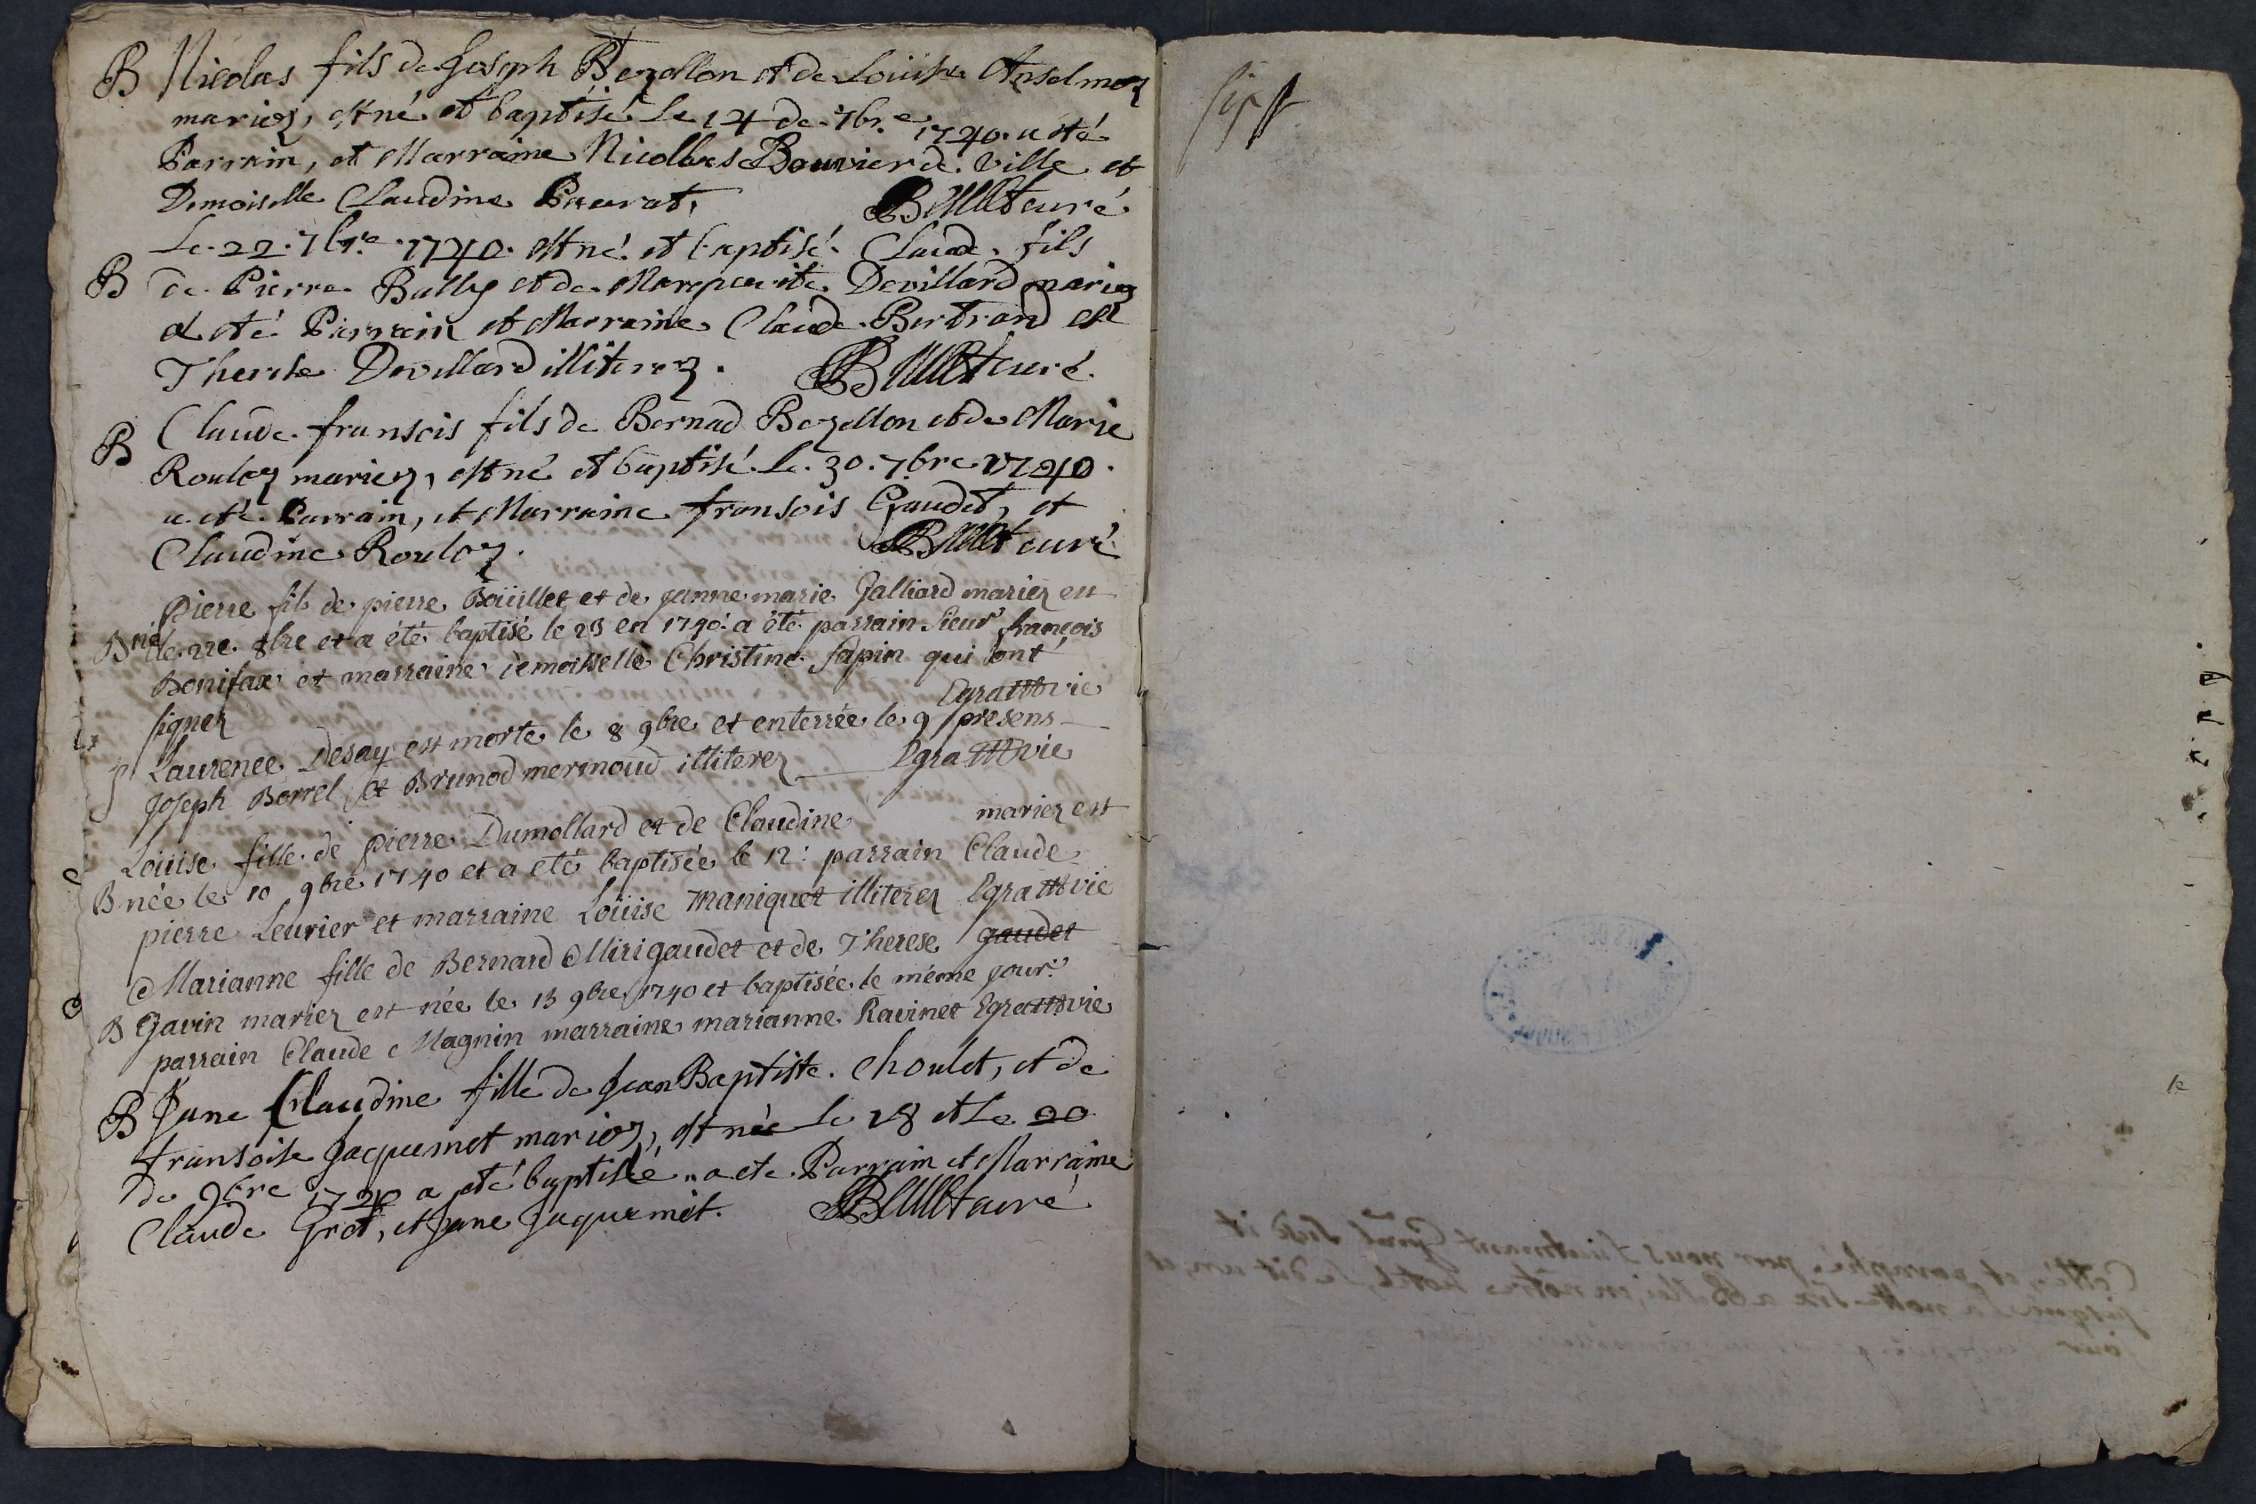 B Nicolas fils de Joseph Bezollon et de Loüise Anselmoz
mariez, est né et baptisé Le 14 de 7bre 1740. a eté
Parrain, et Marraine Nicollas Bouvier de Ville et
Demoiselle Claudine Pieurat, Billiet curé
Le. 22. 7bre. 1740. est né. et baptisé. Claude. fils
B de Pierre Bally et de Margueritte Devillard mariez
a eté Parrain et Marraine Claude Bertrand et
Therese Devillard illiterez. Billiet curé.
Claude fransois fils de Bernad Bezollon et de Marie
B Rouloz mariez, est né et baptisé Le. 30. 7bre 1740.
a eté Parrain, et Marraine fransois Gaudet, et
Claudine Rouloz. Billiet curé
pierre fils de pierre Boüillet et de janne marie Galliard mariez est
B né le 22e 8bre et a été baptisé le 23 en 1740. a été parrain sieur françois
Bonifax et marraine demoiselle Christine fapin qui ont
signez Egrattvie
Laurence Desay est morte le 8 9bre et enterrée le 9 presens
Joseph Borrel et Brunod mermoud illiterez Egrattvie
Loüise fille de pierre Dumollard et de Claudine mariez est
B née le 10 9bre 1740 et a eté baptisée le 12: parrain Claude
pierre Leurier et marraine Loüise Maniquet illiterez Egrattvie
Marianne fille de Bernard Mirigaudet et de Therese gaudet
B Gavin mariez est née le 13 9bre 1740 et baptisée le même jour
parrain Claude Magnin marraine marianne Ravinet Egrattvie
B Jane Claudine fille de Jean Baptiste. Choulet, et de
fransoise Jacquemet mariez, est née Le 18 et Le 20
de 9bre 1740 a eté baptisée a eté Parrain et Marraine
Claude Grot, et Jane Jaquemet. Billiet curé
Cotté, et paraphé, par nous